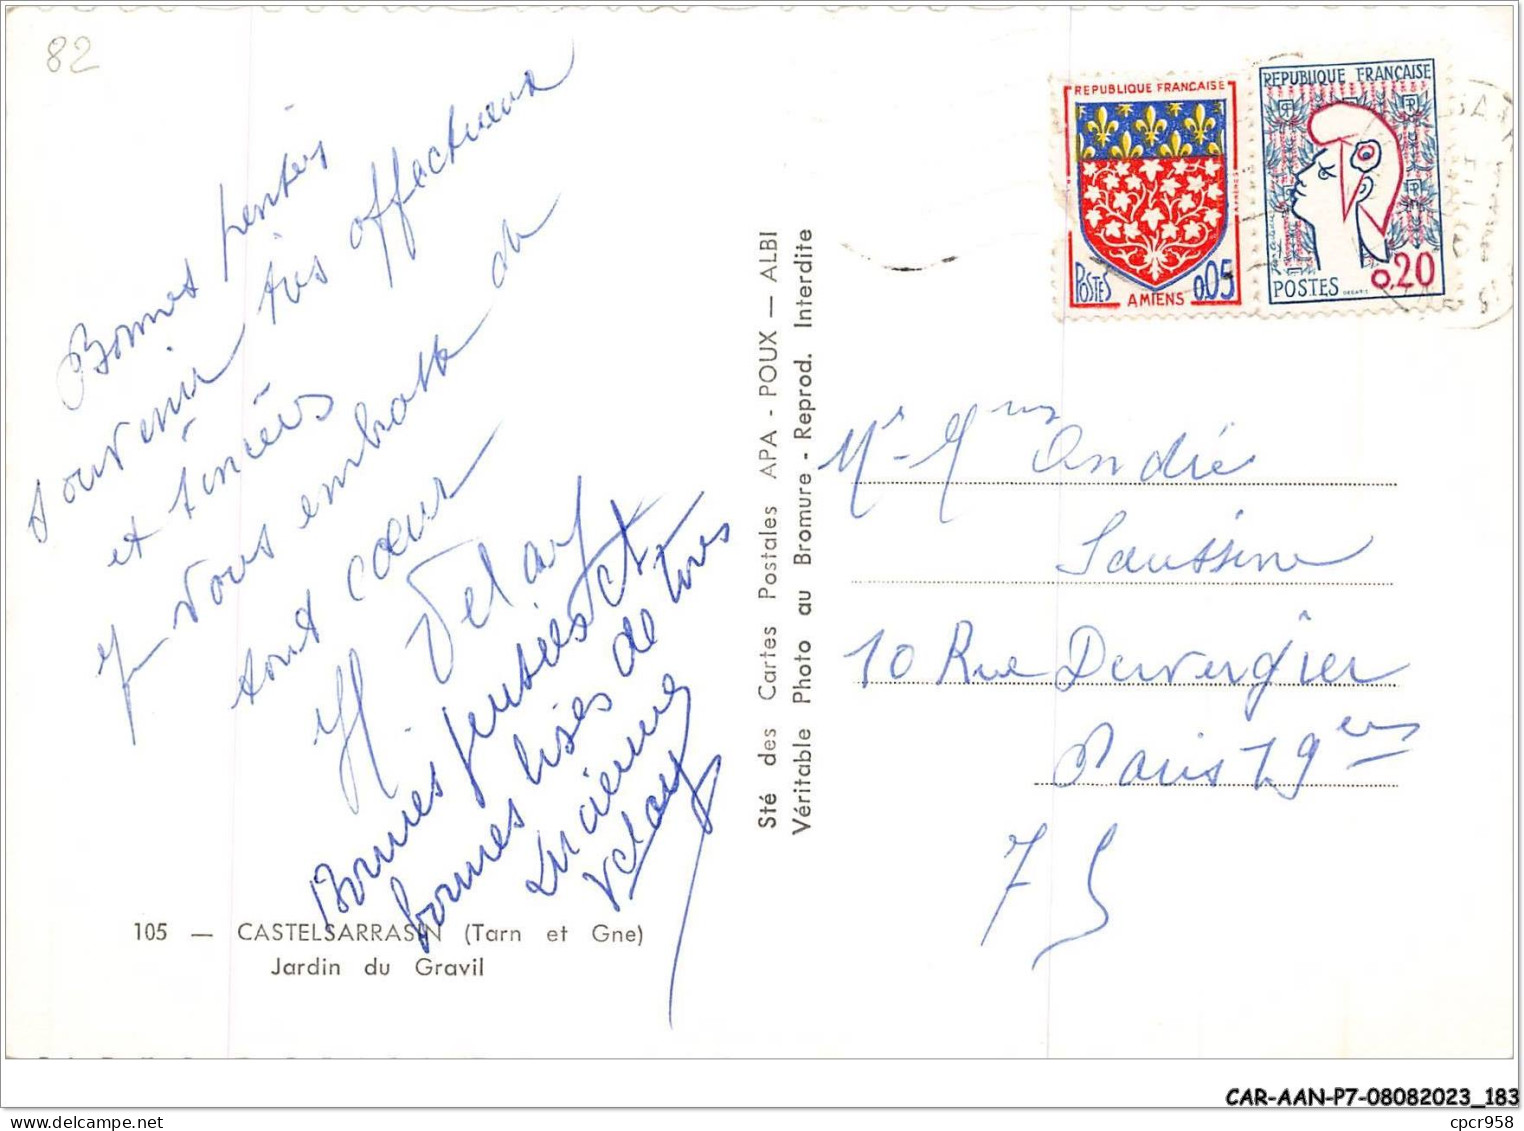 82
Bonnes pensées
souvenir très affectueux
et sincères
Je vous embrasse de
tout cœur
Bonnes pensées et
bonnes bises de tous
Lucienne
Velay
105 — CASTELSARRASIN (Tarn et Gne)
Jardin du Gravil
Sté des Cartes Postales APA - POUX — ALBI
Véritable Photo au Bromure - Reprod. Interdite
REPUBLIQUE FRANCAISE
POSTES AMIENS 0,05
REPUBLIQUE FRANÇAISE
POSTES 0,20
Mr - Mme André
Saussine
10 Rue Duvergier
Paris 19em
75
CAR-AAN-P7-08082023_183
cpcr958